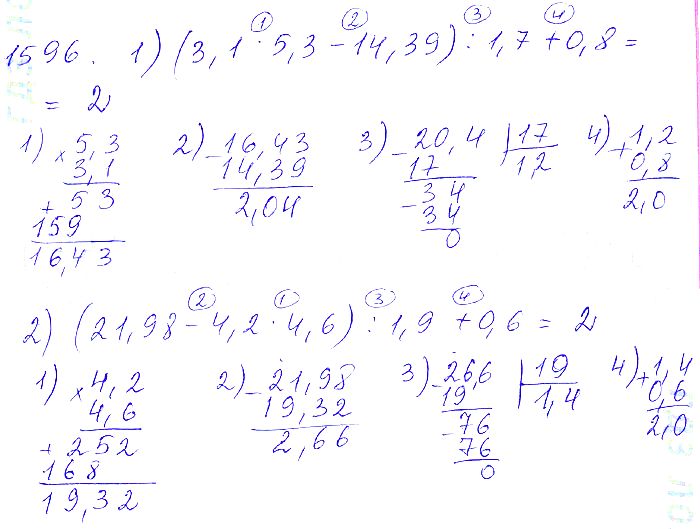 ① ② ③ ④
1596. 1) (3,1 · 5,3 − 14,39) : 1,7 + 0,8 =
= 2
1) × 5,3
3,1
+ 53
159
16,43
2) − 16,43
14,39
2,04
3) − 20,4 | 17
17 1,2
− 34
34
0
4) + 1,2
0,8
2,0
② ① ③ ④
2) (21,98 − 4,2 · 4,6) : 1,9 + 0,6 = 2
1) × 4,2
4,6
+ 252
168
19,32
2) − 21,98
19,32
2,66
3) − 26,6 | 19
19 1,4
− 76
76
0
4) + 1,4
0,6
2,0